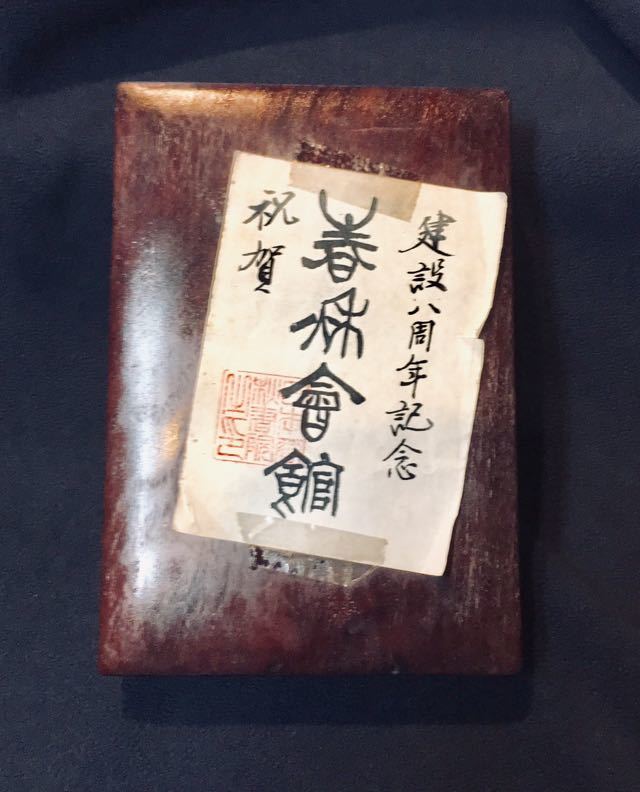 建設八周年記念
春秋會館
祝賀